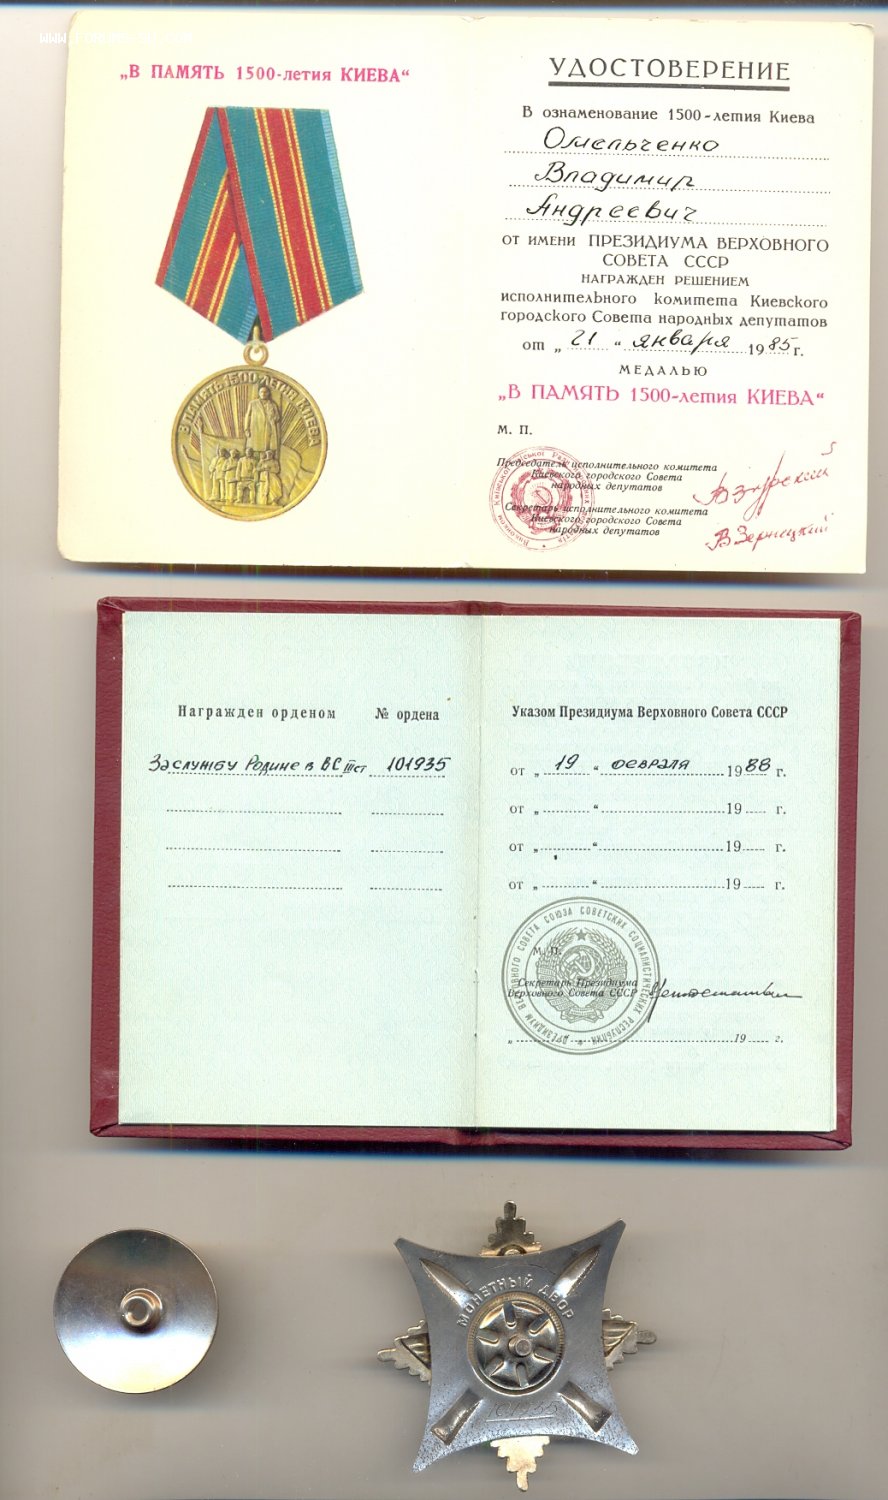 „В ПАМЯТЬ 1500-летия КИЕВА“
В ПАМЯТЬ 1500-ЛЕТИЯ КИЕВА
УДОСТОВЕРЕНИЕ
В ознаменование 1500-летия Киева
Омельченко
Владимир
Андреевич
ОТ ИМЕНИ ПРЕЗИДИУМА ВЕРХОВНОГО
СОВЕТА СССР
НАГРАЖДЕН РЕШЕНИЕМ
исполнительного комитета Киевского
городского Совета народных депутатов
от „ 21 “ января 1985 г.
МЕДАЛЬЮ
„В ПАМЯТЬ 1500-летия КИЕВА“
М. П.
Председатель исполнительного комитета
Киевского городского Совета
народных депутатов
Секретарь исполнительного комитета
Киевского городского Совета
народных депутатов
Награжден орденом № ордена
За службу Родине в ВС III ст 101935
Указом Президиума Верховного Совета СССР
от „ 19 “ февраля 1988 г.
от „ “ 19 г.
от „ “ 19 г.
от „ “ 19 г.
ПРЕЗИДИУМ ВЕРХОВНОГО СОВЕТА СОЮЗА СОВЕТСКИХ СОЦИАЛИСТИЧЕСКИХ РЕСПУБЛИК
М. П.
Секретарь Президиума
Верховного Совета СССР
„ 19 г.
МОНЕТНЫЙ ДВОР
101935